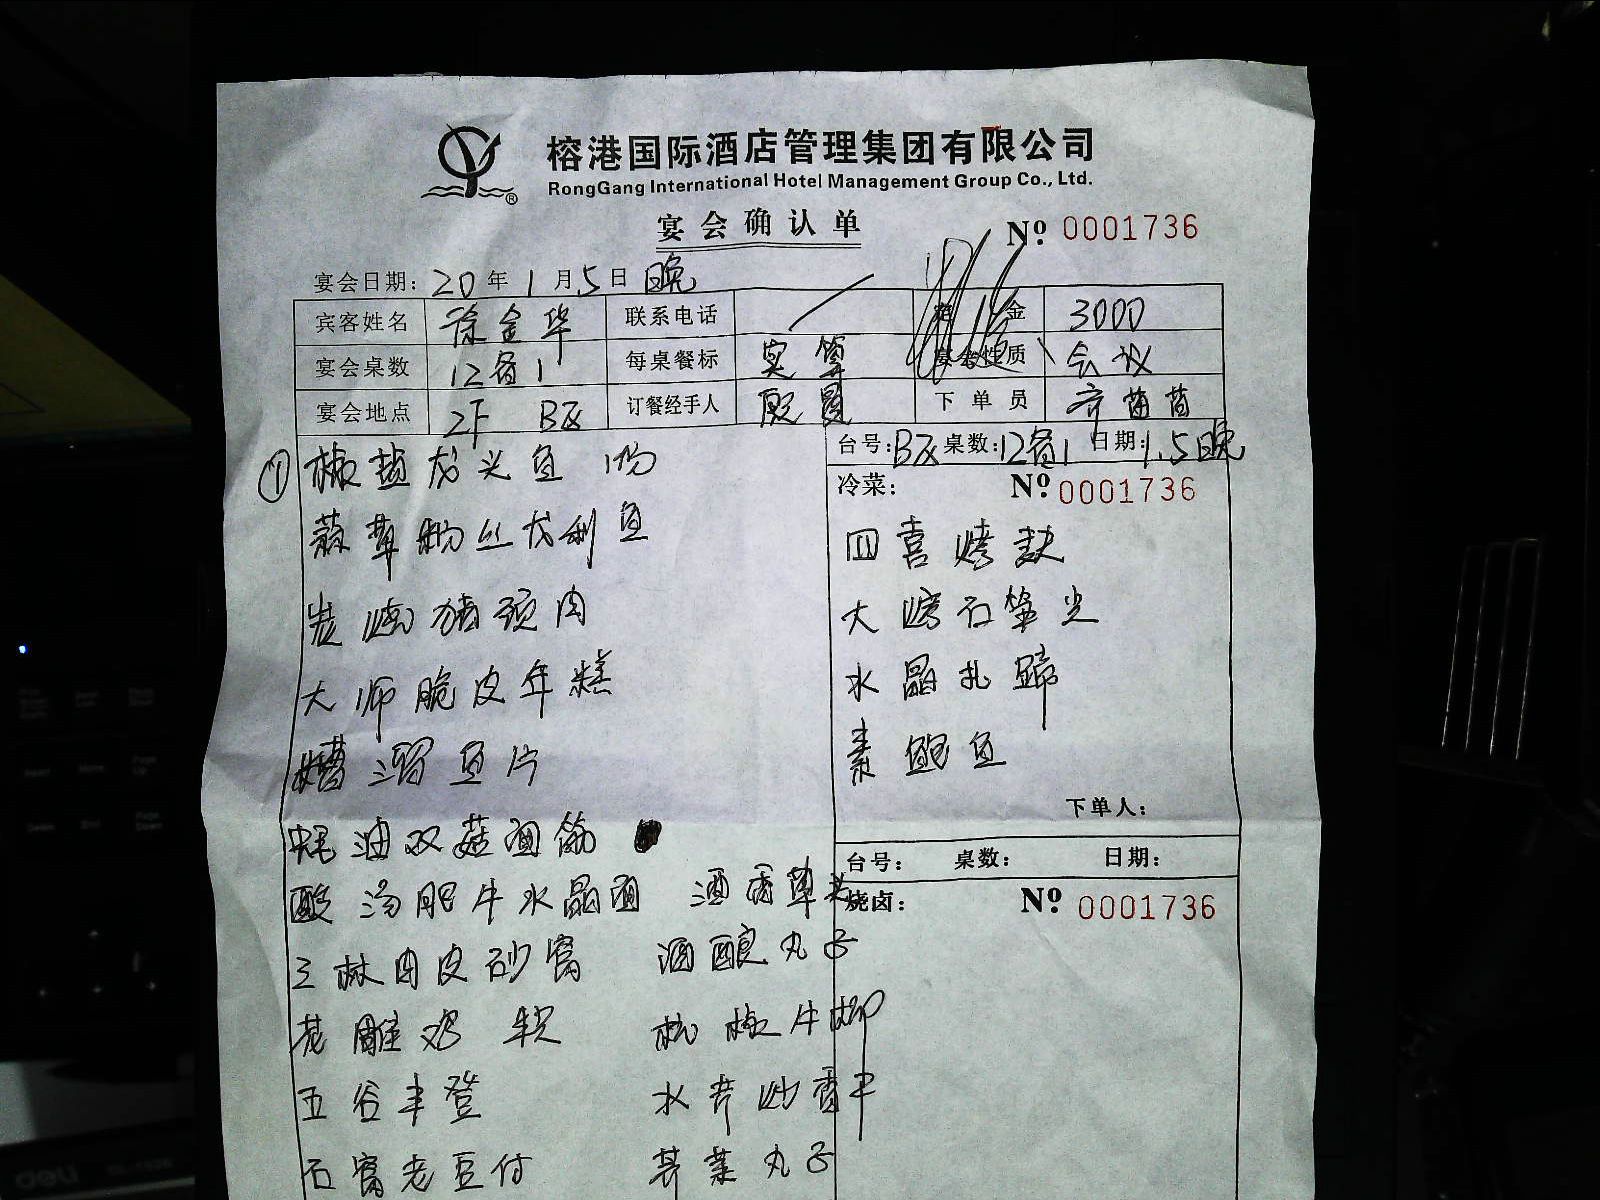 榕港国际酒店管理集团有限公司
RongGang International Hotel Management Group Co., Ltd.
®
宴会确认单
Nº 0001736
宴会日期：20年1月5日晚
宾客姓名 徐金华 联系电话 金 3000
宴会桌数 12备1 每桌餐标 实算 宴会性质 会议
宴会地点 2F B区 订餐经手人 下单员
台号：B区 桌数：12备1 日期：1.5晚
冷菜： Nº 0001736
四喜烤麸
大烤石笋尖
水晶扎蹄
素鲍鱼
下单人：
台号： 桌数： 日期：
烧卤： Nº 0001736
① 椒盐龙头鱼 1份
蒜茸粉丝龙利鱼
炭烧猪颈肉
大师脆皮年糕
糟溜鱼片
蚝油双菇面筋
酸汤肥牛水晶面 酒香草头
三林肉皮砂窝 酒酿丸子
花雕鸡 杭椒牛柳
五谷丰登 水芹炒香干
石窝老豆付 荠菜丸子